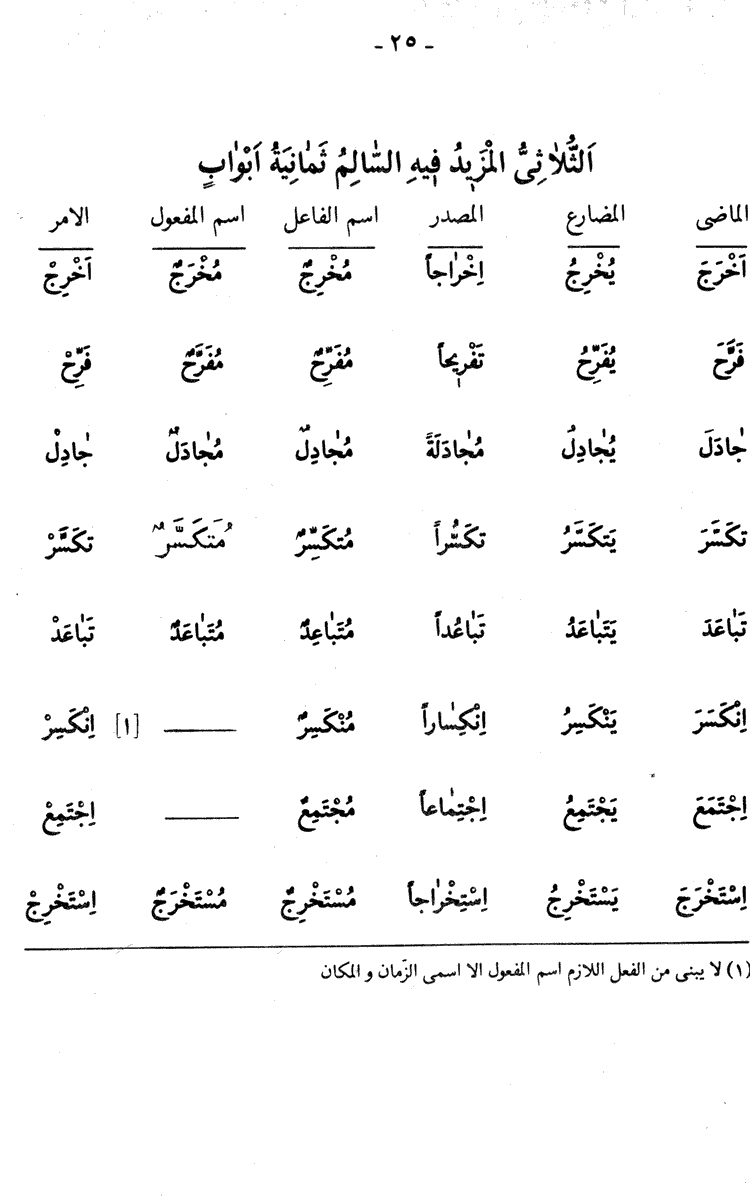 - ٢٥ -
اَلثُّلاٰثِىُّ الْمَزٖيدُ فٖيهِ السّٰالِمُ ثَمٰانِيَةُ اَبْوٰابٍ
الماضى المضارع المصدر اسم الفاعل اسم المفعول الامر
اَخْرَجَ يُخْرِجُ اِخْرٰاجاً مُخْرِجٌ مُخْرَجٌ اَخْرِجْ
فَرَّحَ يُفَرِّحُ تَفْرٖيحاً مُفَرِّحٌ مُفَرَّحٌ فَرِّحْ
جٰادَلَ يُجٰادِلُ مُجٰادَلَةً مُجٰادِلٌ مُجٰادَلٌ جٰادِلْ
تَكَسَّرَ يَتَكَسَّرُ تَكَسُّراً مُتَكَسِّرٌ مُتَكَسَّرٌ تَكَسَّرْ
تَبٰاعَدَ يَتَبٰاعَدُ تَبٰاعُداً مُتَبٰاعِدٌ مُتَبٰاعَدٌ تَبٰاعَدْ
اِنْكَسَرَ يَنْكَسِرُ اِنْكِسٰاراً مُنْكَسِرٌ ——— [١] اِنْكَسِرْ
اِجْتَمَعَ يَجْتَمِعُ اِجْتِمٰاعاً مُجْتَمِعٌ ——— اِجْتَمِعْ
اِسْتَخْرَجَ يَسْتَخْرِجُ اِسْتِخْرٰاجاً مُسْتَخْرِجٌ مُسْتَخْرَجٌ اِسْتَخْرِجْ
(١) لا يبنى من الفعل اللازم اسم المفعول الا اسمى الزّمان و المكان